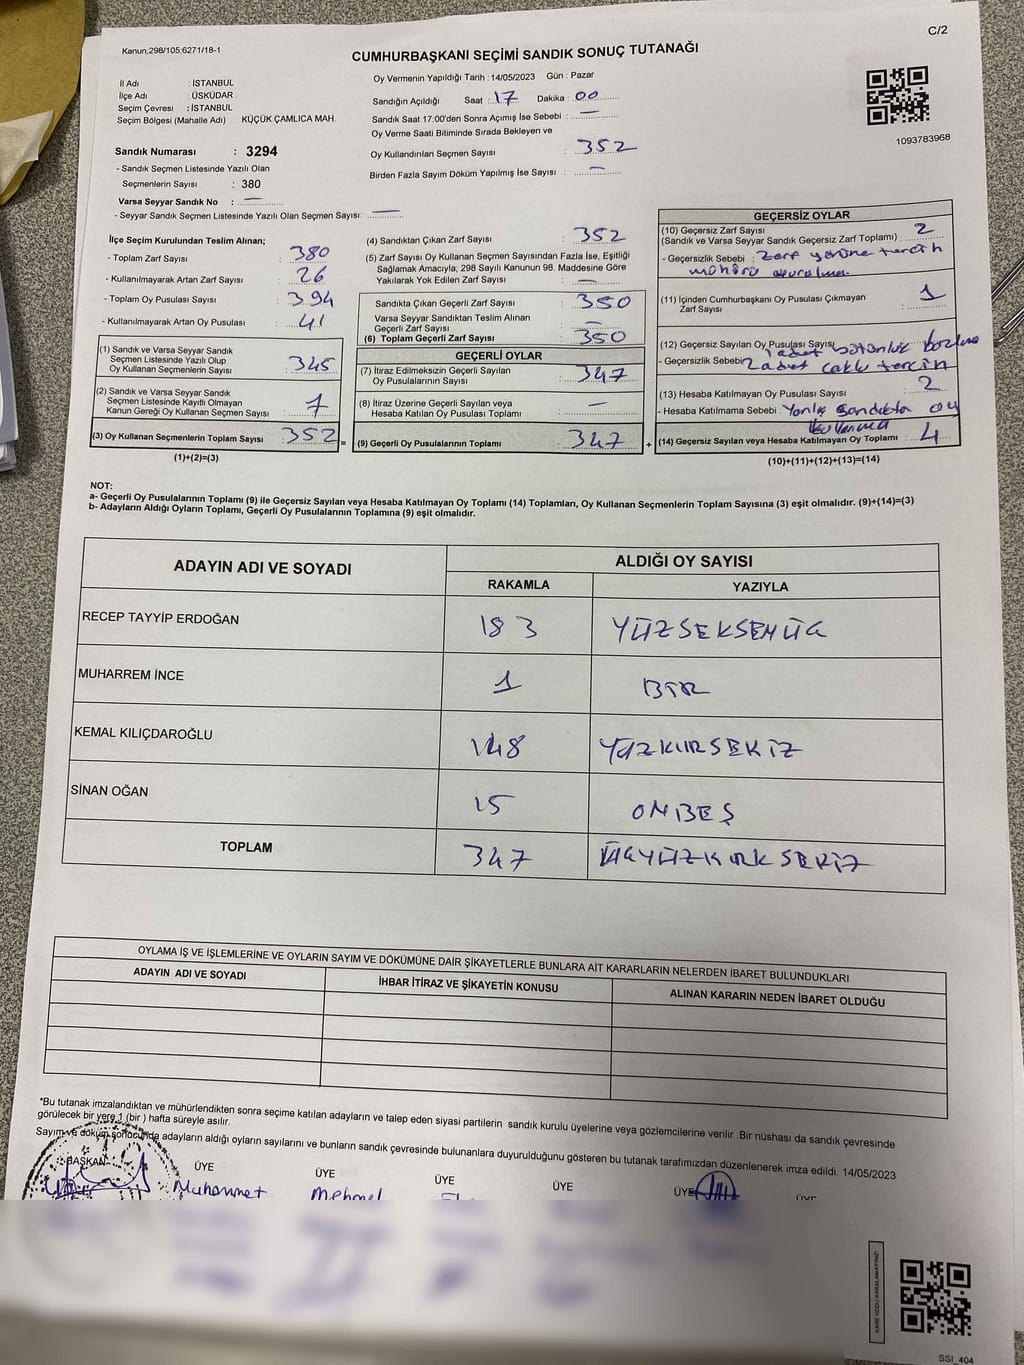 Kanun;298/105;6271/18-1
C/2
CUMHURBAŞKANI SEÇİMİ SANDIK SONUÇ TUTANAĞI
İl Adı : İSTANBUL
İlçe Adı : ÜSKÜDAR
Seçim Çevresi : İSTANBUL
Seçim Bölgesi (Mahalle Adı) : KÜÇÜK ÇAMLICA MAH.
Sandık Numarası : 3294
- Sandık Seçmen Listesinde Yazılı Olan
Seçmenlerin Sayısı : 380
Varsa Seyyar Sandık No : —
- Seyyar Sandık Seçmen Listesinde Yazılı Olan Seçmen Sayısı: —
Oy Vermenin Yapıldığı Tarih : 14/05/2023 Gün : Pazar
Sandığın Açıldığı Saat : 17 Dakika : 00
Sandık Saat 17:00'den Sonra Açımış İse Sebebi : —
Oy Verme Saati Bitiminde Sırada Bekleyen ve
Oy Kullandırılan Seçmen Sayısı : 352
Birden Fazla Sayım Döküm Yapılmış İse Sayısı : —
1093783968
İlçe Seçim Kurulundan Teslim Alınan;
- Toplam Zarf Sayısı : 380
- Kullanılmayarak Artan Zarf Sayısı : 26
- Toplam Oy Pusulası Sayısı : 394
- Kullanılmayarak Artan Oy Pusulası : 41
(1) Sandık ve Varsa Seyyar Sandık
Seçmen Listesinde Yazılı Olup
Oy Kullanan Seçmenlerin Sayısı : 345
(2) Sandık ve Varsa Seyyar Sandık
Seçmen Listesinde Kayıtlı Olmayan
Kanun Gereği Oy Kullanan Seçmen Sayısı : 7
(3) Oy Kullanan Seçmenlerin Toplam Sayısı : 352 =
(1)+(2)=(3)
(4) Sandıktan Çıkan Zarf Sayısı : 352
(5) Zarf Sayısı Oy Kullanan Seçmen Sayısından Fazla İse, Eşitliği
Sağlamak Amacıyla, 298 Sayılı Kanunun 98. Maddesine Göre
Yakılarak Yok Edilen Zarf Sayısı : —
Sandıkta Çıkan Geçerli Zarf Sayısı : 350
Varsa Seyyar Sandıktan Teslim Alınan
Geçerli Zarf Sayısı : —
(6) Toplam Geçerli Zarf Sayısı : 350
GEÇERLİ OYLAR
(7) İtiraz Edilmeksizin Geçerli Sayılan
Oy Pusulalarının Sayısı : 347
(8) İtiraz Üzerine Geçerli Sayılan veya
Hesaba Katılan Oy Pusulası Toplamı : —
(9) Geçerli Oy Pusulalarının Toplamı : 347 +
GEÇERSİZ OYLAR
(10) Geçersiz Zarf Sayısı
(Sandık ve Varsa Seyyar Sandık Geçersiz Zarf Toplamı) : 2
- Geçersizlik Sebebi : Zarf yönüne tercih
mührü vurulma.
(11) İçinden Cumhurbaşkanı Oy Pusulası Çıkmayan
Zarf Sayısı : 1
(12) Geçersiz Sayılan Oy Pusulası Sayısı 1 adet bütünlük bozulma
- Geçersizlik Sebebi 2 adet çoklu tercih
(13) Hesaba Katılmayan Oy Pusulası Sayısı : 2
- Hesaba Katılmama Sebebi : Yanlış sandıkta oy
kullanma
(14) Geçersiz Sayılan veya Hesaba Katılmayan Oy Toplamı : 4
(10)+(11)+(12)+(13)=(14)
NOT:
a- Geçerli Oy Pusulalarının Toplamı (9) ile Geçersiz Sayılan veya Hesaba Katılmayan Oy Toplamı (14) Toplamları, Oy Kullanan Seçmenlerin Toplam Sayısına (3) eşit olmalıdır. (9)+(14)=(3)
b- Adayların Aldığı Oyların Toplamı, Geçerli Oy Pusulalarının Toplamına (9) eşit olmalıdır.
ADAYIN ADI VE SOYADI
ALDIĞI OY SAYISI
RAKAMLA YAZIYLA
RECEP TAYYİP ERDOĞAN 183 YÜZSEKSENÜÇ
MUHARREM İNCE 1 BİR
KEMAL KILIÇDAROĞLU 148 YÜZKIRSEKİZ
SİNAN OĞAN 15 ONBEŞ
TOPLAM 347 ÜÇYÜZKIRKSEKİZ
OYLAMA İŞ VE İŞLEMLERİNE VE OYLARIN SAYIM VE DÖKÜMÜNE DAİR ŞİKAYETLERLE BUNLARA AİT KARARLARIN NELERDEN İBARET BULUNDUKLARI
ADAYIN ADI VE SOYADI İHBAR İTİRAZ VE ŞİKAYETİN KONUSU ALINAN KARARIN NEDEN İBARET OLDUĞU
*Bu tutanak imzalandıktan ve mühürlendikten sonra seçime katılan adayların ve talep eden siyasi partilerin sandık kurulu üyelerine veya gözlemcilerine verilir .Bir nüshası da sandık çevresinde
görülecek bir yere 1 (bir ) hafta süreyle asılır.
Sayım ve döküm sonucunda adayların aldığı oyların sayılarını ve bunların sandık çevresinde bulunanlara duyurulduğunu gösteren bu tutanak tarafımızdan düzenlenerek imza edildi. 14/05/2023
BAŞKAN ÜYE ÜYE ÜYE ÜYE ÜYE ÜYE
Muhammet Mehmet
KARE KODU KARALAMAYINIZ!
SSI_404